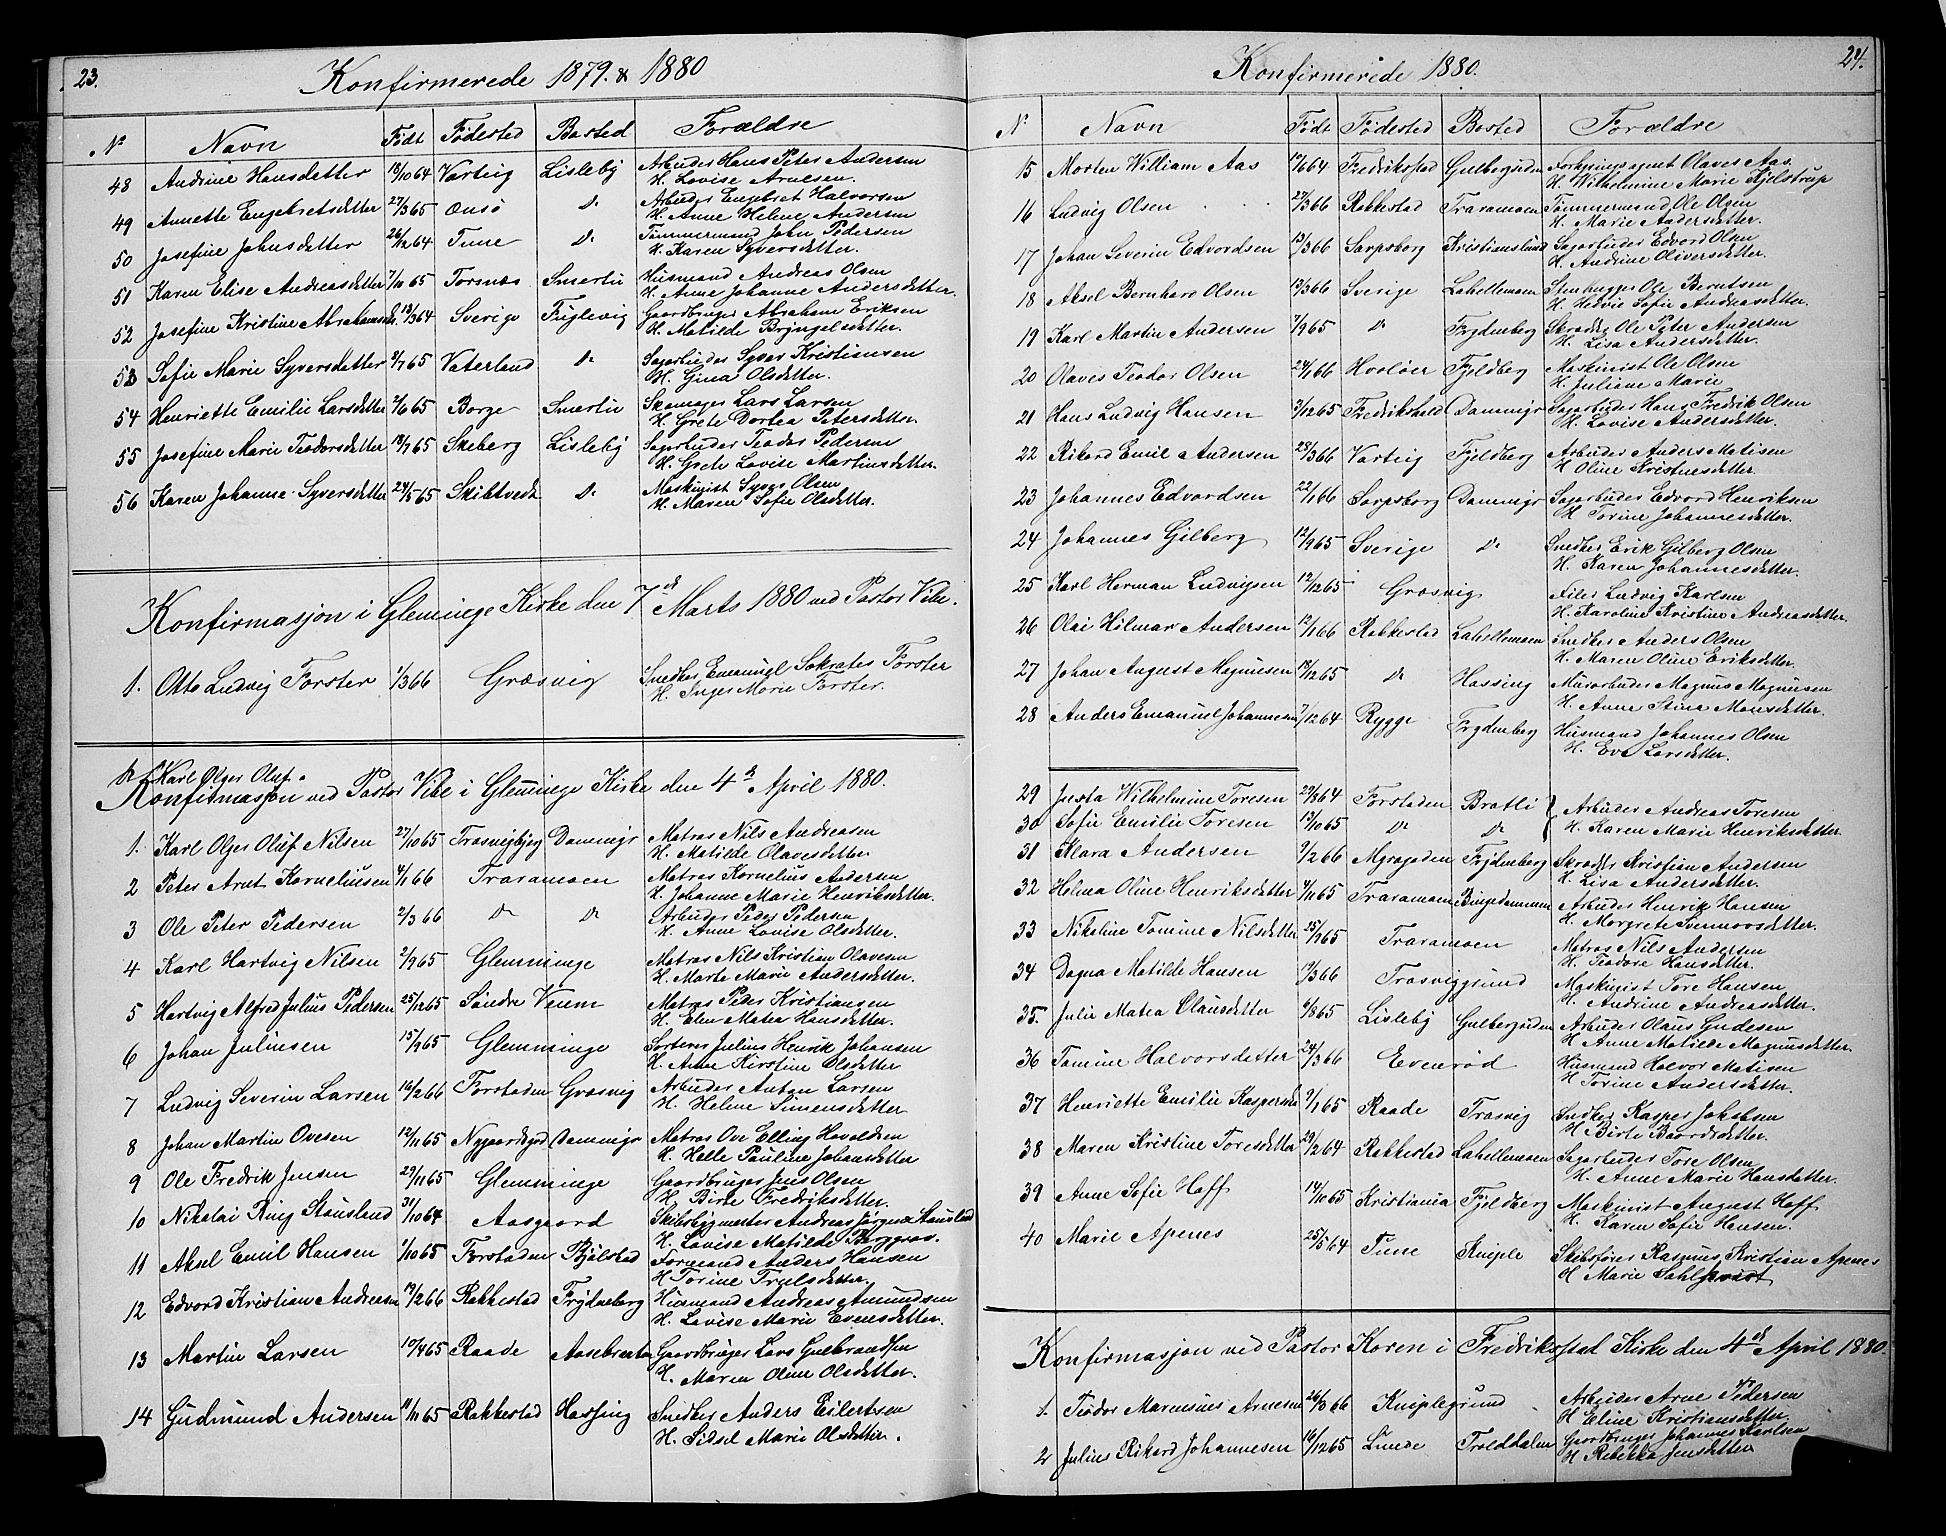 23.
Konfirmerede 1879. & 1880
No Navn Født Fødested Bosted Forældre
48 Andrine Hansdatter 13/10 64 Varteig Lisleby Arbeider Hans Peter Andersen
H. Lovise Arnesen.
49 Annette Engebretsdatter 27/3 65 Onsø do Arbeider Engebret Halvorsen
H. Anne Helene Andersen
50 Josefine Johnsdatter 26/12 64 Tune do Tømmermand John Pedersen
H. Karen Syversdatter.
51 Karen Elise Andreasdatter 7/10 65 Torsnæs Smertu Husmand Andreas Olsen
H. Anne Johanne Andersdatter.
52 Josefine Kristine Abrahamsd. 13/3 64 Sverige Fuglevig Gaardbruger Abraham Eriksen
H. Matilde Bryngelsdatter.
53 Sofie Marie Syversdatter 2/7 65 Vaterland do Sagarbeider Syver Kristiansen
H. Gina Olsdatter.
54 Henriette Emilie Larsdatter 2/6 65 Borge Smertu Skomager Lars Larsen
H. Grete Dortea Petersdatter.
55 Josefine Marie Teodorsdatter 18/7 65 Skeberg Lisleby Sagarbeider Teodor Pedersen
H. Grete Lovise Martinsdatter.
56 Karen Johanne Syversdatter 24/5 65 Skibtvedt do Maskinist Syver Olsen
H. Maren Sofie Olsdatter.
Konfirmasjon i Glemminge Kirke den 7de Marts 1880 ved Pastor Vibe.
1. Otto Ludvig Forster 1/3 66 Græsvig Snedker Emanuel Sokrates Forster
H. Inger Marie Forster.
Karl Olger Oluf
Konfirmasjon ved Pastor Vibe i Glemminge Kirke den 4de April 1880.
1. Karl Olger Oluf Nilsen 27/10 65 Trosvigbjeg Dammyr Matros Nils Andreasen
H. Matilde Olavesdatter.
2 Peter Arnt Korneliusen 4/1 66 Traramoen Matros Kornelius Andersen
H. Johanne Marie Henriksdatter.
3 Ole Peter Pedersen 2/3 66 do do Arbeider Peder Pedersen
H. Anne Lovise Olsdatter.
4 Karl Hartvig Nilsen 2/9 65 Glemminge Matros Nils Kristian Olavesen
H. Marte Marie Andersdatter.
5 Hartvig Alfred Julius Pedersen 25/12 65 Søndre Veum Matros Peder Kristiansen
H. Elen Matea Hansdatter.
6 Johan Juliusen 15/9 65 Glemminge Sorterer Julius Henrik Johansen
H. Anne Kirstine Olsdatter
7 Ludvig Severin Larsen 16/2 66 Forstaden Græsvig Arbeider Anton Larsen
H. Helene Simensdatter
8 Johan Martin Ovesen 12/11 65 Nygaardsgd Dammyr Matros Ove Elling Havoldsen
H. Helle Pauline Johansdatter
9 Ole Fredrik Jensen 29/11 65 Glemminge Gaardbruger Jens Olsen
H. Birte Fredriksdatter.
10 Nikolai Ring Stousland 31/10 64 Aasgaard Skibsbygmester Andreas Jørgen Stousland
H. Lovise Matilde Borggrav.
11 Aksel Emil Hansen 1/10 65 Forstaden Bjølstad Formand Anders Hansen
H. Torine Trulsdatter
12 Edvard Kristian Andreasen 13/2 66 Rakkestad Frydenberg Husmand Andreas Amundsen
H. Lovise Marie Evensdatter.
13 Martin Larsen 10/4 65 Raade Aasebraaten Gaardbruger Lars Gulbrandsen
H. Maren Oline Olsdatter.
14 Gudmund Andersen 11/11 65 Rakkestad Hassing Snedker Anders Eilertsen
H. Sidsel Marie Olsdatter.
24.
Konfirmerede 1880.
No Navn Født Fødested Bosted Forældre
15 Morten William Aas 17/6 64 Fredrikstad Gulbergsiden Forhyringsagent Olaves Aas
H. Wilhelmine Marie Kjelstrup
16 Ludvig Olsen 27/3 66 Rakkestad Traramoen Tømmermand Ole Olsen
H. Marie Andersdatter.
17 Johan Severin Edvardsen 13/3 66 Sarpsborg Kristianslund Sagarbeider Edvard Olsen
H. Andrine Oliversdatter.
18 Aksel Bernhard Olsen 13/3 66 Sverige Labellemoen Stenhugger Ole Berntsen
H. Hedvig Sofie Andreasdatter.
19 Karl Martin Andersen 7/9 65 do Frydenberg Skrædder Ole Peter Andersen
H. Lisa Andersdatter.
20 Olaves Teodor Olsen 24/1 66 Hvaløer Fjeldberg Maskinist Ole Olsen
H. Juliane Marie
21 Hans Ludvig Hansen 7/12 65 Fredrikshald Dammyr Sagarbeider Hans Fredrik Olsen
H. Lovise Andersdatter.
22 Rikard Emil Andersen 28/3 66 Varteig Fjeldberg Arbeider Anders Matisen
H. Oline Kristinesdatter
23 Johannes Edvardsen 22/1 66 Sarpsborg Dammyr Sagarbeider Edvard Henriksen
H. Torine Johannesdatter.
24 Johannes Gilberg 12/9 65 Sverige do Snedker Erik Gilberg Olsen
H. Karen Johannesdatter.
25 Karl Herman Ludvigsen 12/12 65 Græsvig Filer Ludvig Karlsen
H. Karoline Kristine Andreasdatter.
26 Olai Hilmar Andersen 12/1 66 Rakkestad Labellemoen Snedker Anders Olsen
H. Maren Oline Eriksdatter.
27 Johan August Magnusen 13/12 65 do Hassing Murarbeider Magnus Magnusen
H. Anne Stina Monsdatter.
28 Anders Emanuel Johannesen 7/12 64 Rygge Frydenberg Husmand Johannes Olsen
H. Eva Larsdatter.
29 Justa Wilhelmine Toresen 29/3 64 Forstaden Bratli Arbeider Andreas Toresen
30 Sofie Emilie Toresen 13/10 65 do do H. Karen Marie Henriksdatter.
31 Klara Andersen 9/2 66 Myragaden Frydenberg Skrædder Kristian Andersen
H. Lisa Andersdatter.
32 Helma Oline Henriksdatter 4/11 65 Traramoen Bingedammen Arbeider Henrik Hansen
H. Margrete Svennorsdatter.
33 Nikoline Tomine Nilsdatter 25/9 65 Traramoen Matros Nils Andersen
H. Teodore Hansdatter.
34 Dagna Matilde Hansen 19/3 66 Trosviggrund Maskinist Tore Hansen
H. Andrine Andreasdatter.
35. Julie Matea Olausdatter 6/8 65 Lisleby Gulbergsiden Arbeider Olaus Gudesen
H. Anne Matilde Magnusdatter.
36 Tomine Halvorsdatter 24/3 66 Evenrød Husmand Halvor Matisen
H. Torine Andersdatter.
37 Henriette Emilie Kaspersen 9/1 65 Raade Trosvig Snedker Kasper Jakobsen
H. Birte Baardsdatter.
38 Maren Kristine Toresdatter 29/2 64 Rakkestad Labellemoen Sagarbeider Tore Olsen
H. Anne Marie Hansdatter.
39 Anne Sofie Hoff 14/10 65 Kristiania Fjeldberg Maskinist August Hoff
H. Karen Sofie Hansen.
40 Marie Apenes 25/5 64 Tune Kniple Skibsfører Rasmus Kristian Apenes
H. Marie Sahlqvist
Konfirmasjon ved Pastor Koren i Fredrikstad Kirke den 4de April 1880.
1. Teodor Marensius Arnesen 26/3 66 Kniplegrund Arbeider Arne Pedersen
H. Eline Kristiansdatter
2 Julius Rikard Johannesen 16/12 65 Lunde Trolddalen Gaardbruger Johannes Karlsen
H. Rebekka Jensdatter